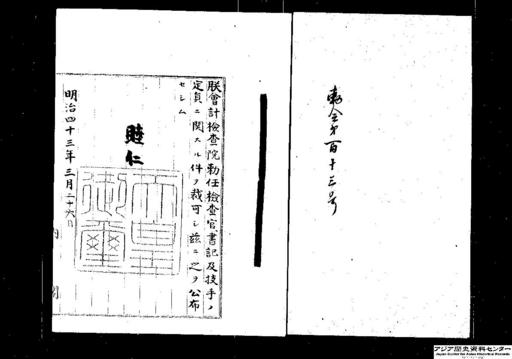 勅令第百十三号
朕會計檢査院勅任檢査官書記及技手ノ
定員ニ關スル件ヲ裁可シ茲ニ之ヲ公布
セシム
睦仁
天皇御璽
明治四十三年三月二十六日
アジア歴史資料センター
Japan Center for Asian Historical Records